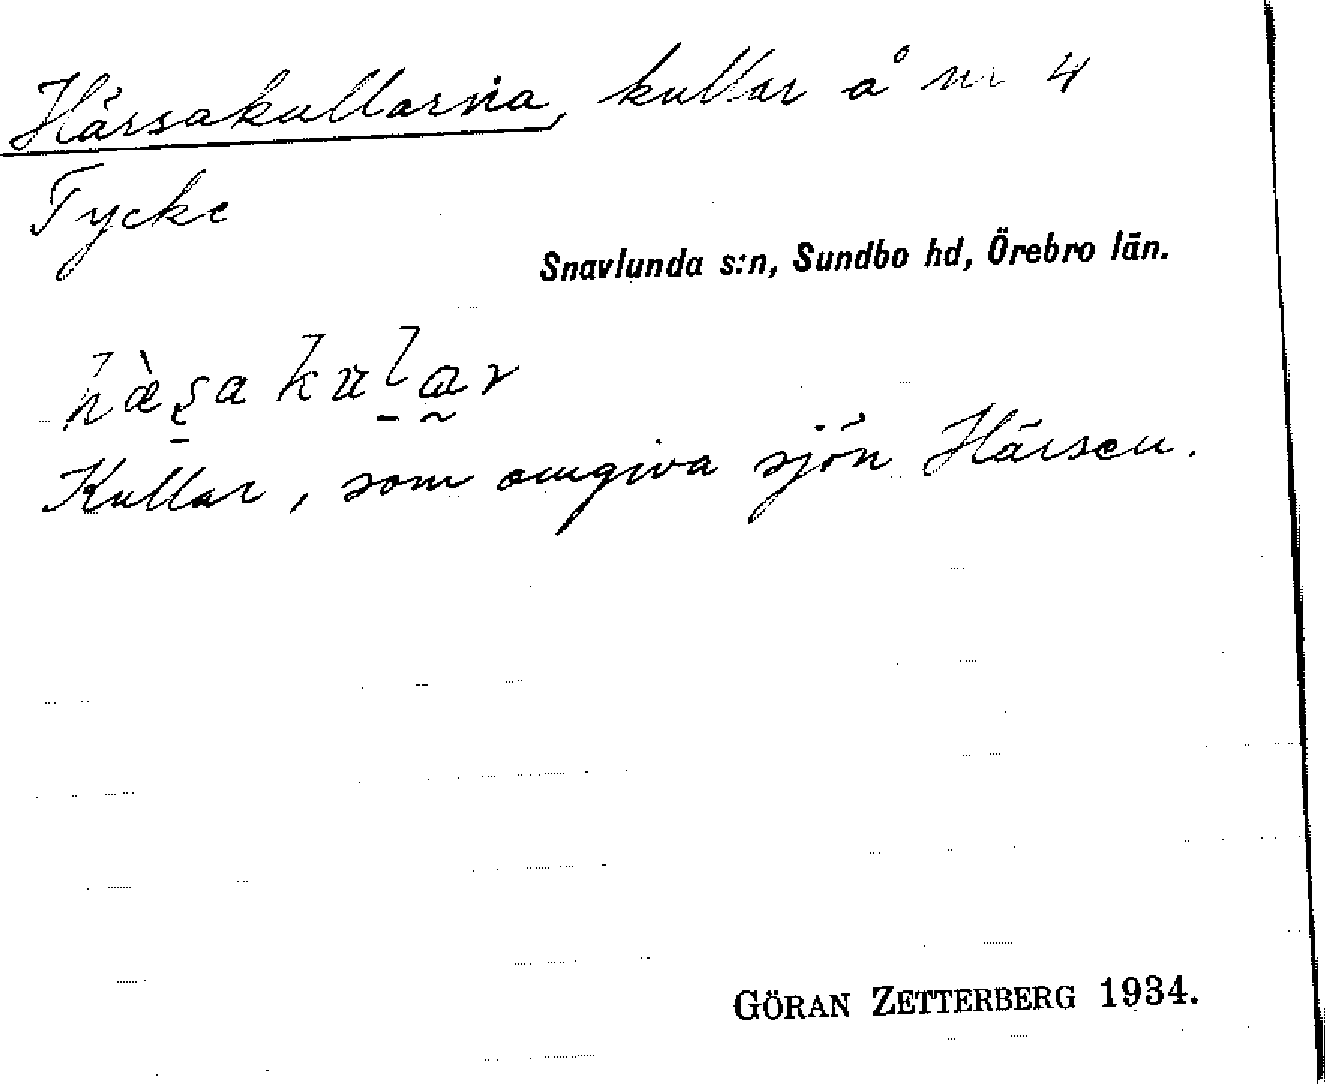 Härsakullarna, kullar å nr 4
Tycke
Snavlunda s:n, Sundbo hd, Örebro län.
hæ̀ʂa kular
Kullar, som omgiva sjön Härsen.
GÖRAN ZETTERBERG 1934.